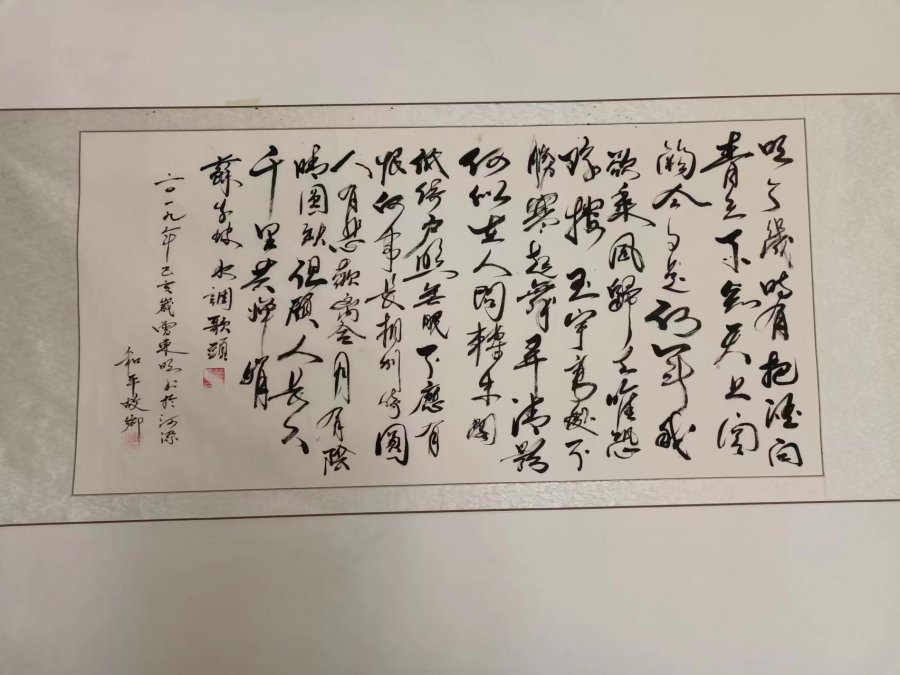 明月幾時有把酒问
青天不知天上宫
闕今夕是何年我
欲乘风歸去唯恐
瓊樓玉宇高處不
勝寒起舞弄清影
何似在人间轉朱阁
低绮户照無眠不應有
恨何事长相别時圓
人有悲歡離合月有陰
晴圓缺但願人长久
千里共婵娟
蘇东坡水調歌頭
二〇一九年己亥歲東明书於河源
和平故鄉